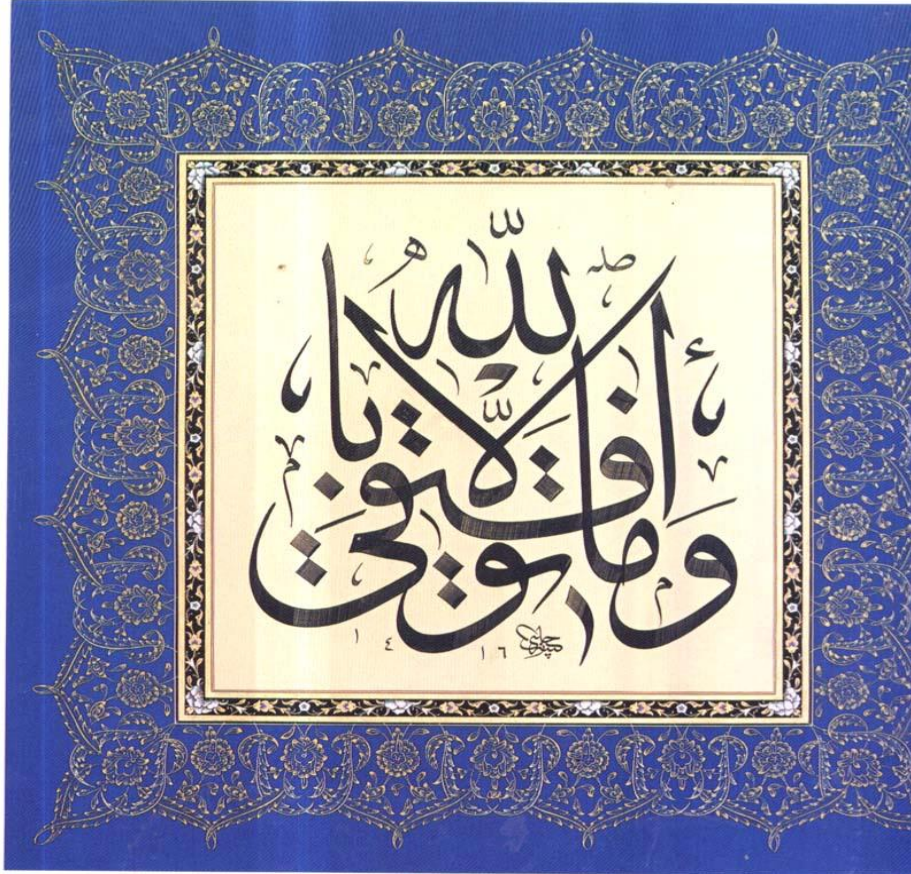 وما توفيقي إلا بالله
١٤١٦